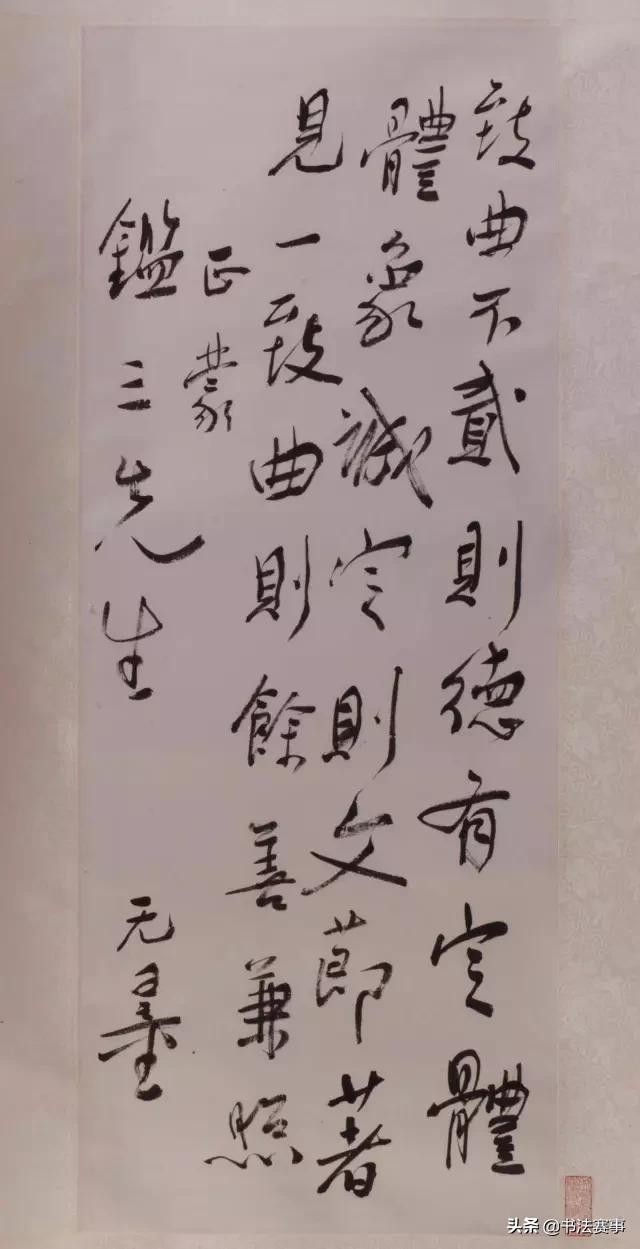 致曲不貳則德有定體
體象誠定則文節著
見一致曲則餘善兼照
正蒙
鑑三先生 无量
头条 @书法赛事